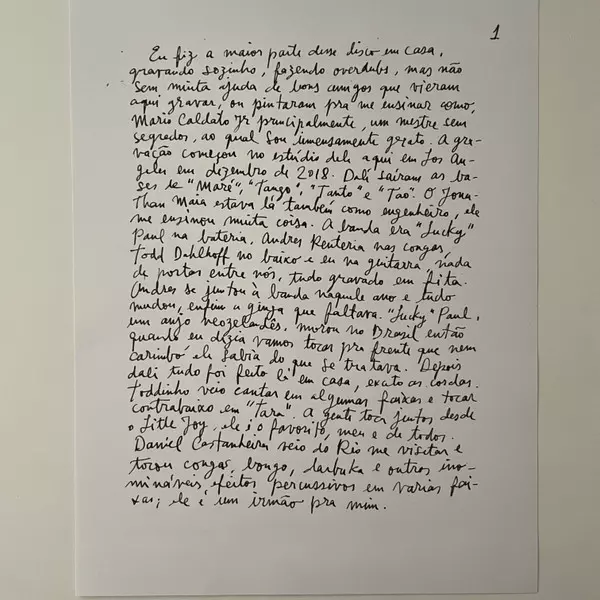 1
Eu fiz a maior parte desse disco em casa,
gravando sozinho, fazendo overdubs, mas não
sem muita ajuda de bons amigos que vieram
aqui gravar, ou pintaram pra me ensinar como,
Mario Caldato Jr principalmente, um mestre sem
segredos, ao qual sou imensamente grato. A gra-
vação começou no estúdio dele aqui em Los An-
geles em dezembro de 2018. Dali saíram as ba-
ses de "Maré", "Tango", "Tanto" e "Tao". O Jona-
than Maia estava lá também como engenheiro, ele
me ensinou muita coisa. A banda era "Lucky"
Paul na bateria, Andres Renteria nas congas,
Todd Dahlhoff no baixo e eu na guitarra, nada
de portas entre nós, tudo gravado em fita.
Andres se juntou à banda naquele ano e tudo
mudou, enfim a ginga que faltava. "Lucky" Paul,
um anjo neozelandês, morou no Brasil então
quando eu dizia vamos tocar pra frente que nem
carimbó ele sabia do que se tratava. Depois
dali tudo foi feito lá em casa, exceto as cordas.
Toddinho veio cantar em algumas faixas e tocar
contrabaixo em "Tara". A gente toca juntos desde
o Little Joy, ele é o favorito, meu e de todos.
Daniel Castanheira veio do Rio me visitar e
tocou congas, bongo, darbuka e outros ino-
mináveis efeitos percussivos em varias fai-
xas; ele é um irmão pra mim.